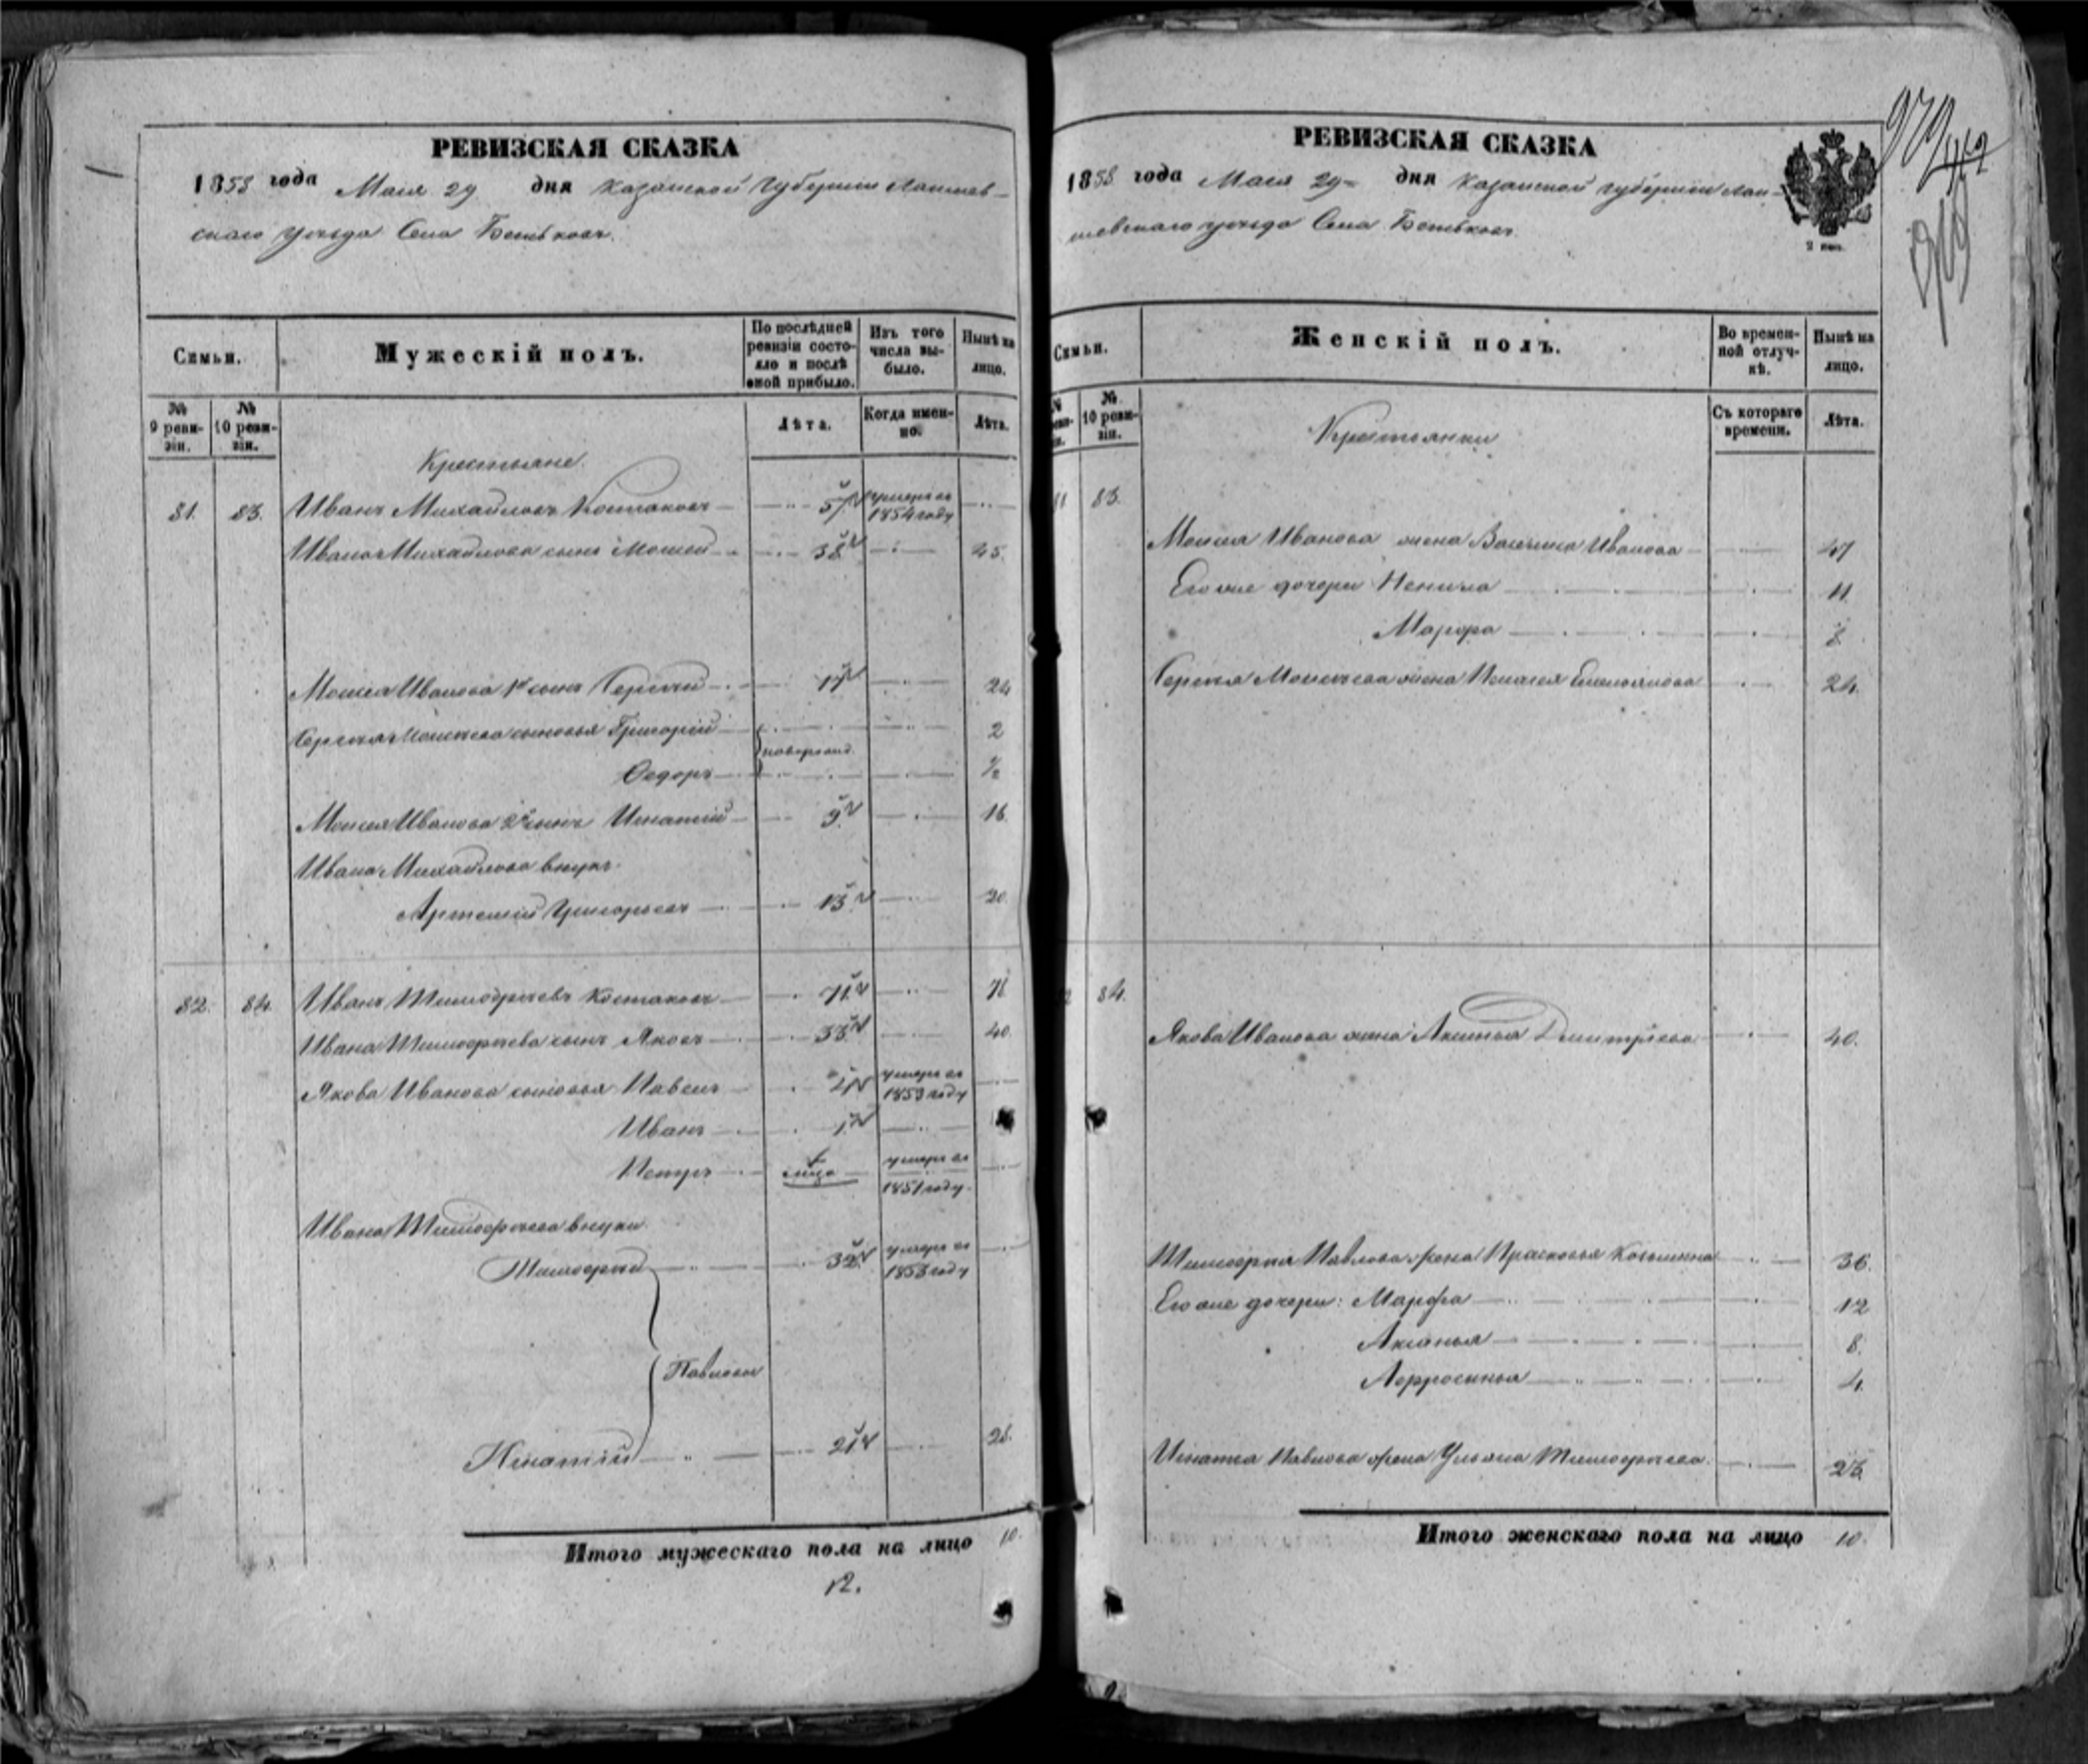 РЕВИЗСКАЯ СКАЗКА
1858 года Мая 29 дня Казанской Губернiи Лаишев-
скаго уѣзда Села Бетьковъ.
Семьи.
Мужескiй полъ.
По послѣдней ревизiи состояло и послѣ оной прибыло.
Изъ того числа выбыло.
Нынѣ на лицо.
№ 9 ревизiи.
№ 10 ревизiи.
Лѣта.
Когда именно.
Лѣта.
Крестьяне.
81. 83. Иванъ Михайловъ Костаковъ 57 умеръ въ 1854 году
Ивана Михайлова сынъ Моисей 38 45.
Моисея Иванова 1й сынъ Сергѣй 17 24
Сергѣя Моисѣева сыновья Григорiй новорожд. 2
Федоръ 1/2
Моисея Иванова 2й сынъ Игнатiй 9 16.
Ивана Михайлова внукъ
Артемiй Григорьевъ 13 20.
82. 84. Иванъ Тимофѣевъ Костаковъ 71 78
Ивана Тимофѣева сынъ Яковъ 33 40.
Якова Иванова сыновья Павелъ умеръ въ 1853 году
Иванъ 1
Петръ умеръ въ 1851 году.
Ивана Тимофѣева внуки
Тимофей 32 умеръ въ 1853 году
Павловы
Игнатiй 21 28.
Итого мужескаго пола на лицо 10.
12.
РЕВИЗСКАЯ СКАЗКА
1858 года Мая 29 дня Казанской губернiи Лаи-
шевскаго уѣзда Села Бетьковъ
2 коп.
979
Семьи.
Женскiй полъ.
Во временной отлучкѣ.
Нынѣ на лицо.
№ 10 ревизiи.
Съ котораго времени.
Лѣта.
Крестьянки
83.
Моисея Иванова жена Василиса Иванова 47
Его же дочери Ненила 11.
Марфа 8
Сергѣя Моисѣева жена Пелагея Емельянова 24.
84.
Якова Иванова жена Аксинья Дмитрiева 40.
Тимофея Павлова жена Прасковья Козьмина 36.
Его же дочери: Марфа 12
Аксинья 8.
Афросинья 4.
Игнатiя Павлова жена Ульяна Тимофѣева. 26
Итого женскаго пола на лицо 10.